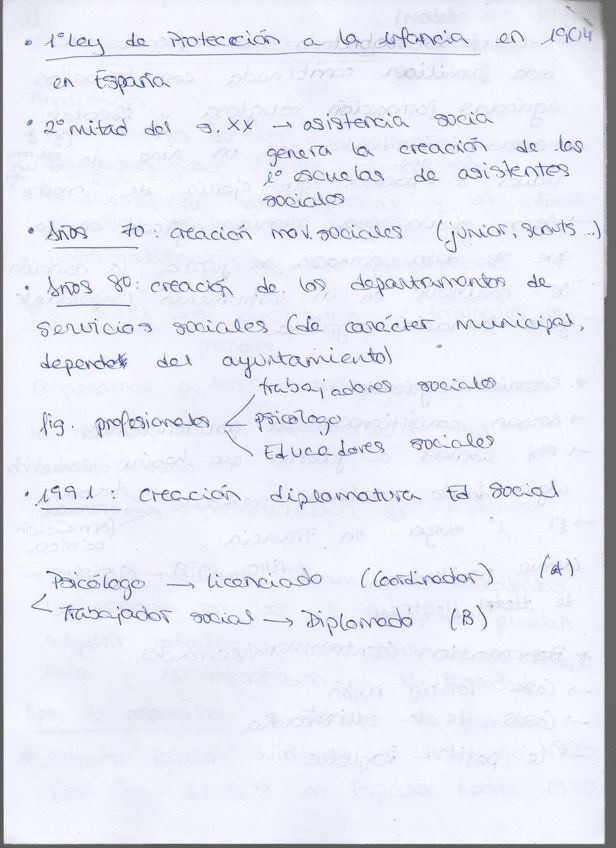 • 1º Ley de Protección a la Infancia en 1904
en España
• 2º mitad del s. XX → asistencia socia
genera la creación de las
1º escuelas de asistentes
sociales
• Años 70: creación mov. sociales (junior, scouts...)
• Años 80: creación de los departamentos de
servicios sociales (de carácter municipal,
depende del ayuntamiento)
fig. profesionales
trabajadores sociales
psicólogo
Educadores sociales
• 1991: creación diplomatura Ed social
Psicólogo → licenciado (coordinador) (A)
Trabajador social → Diplomado (B)